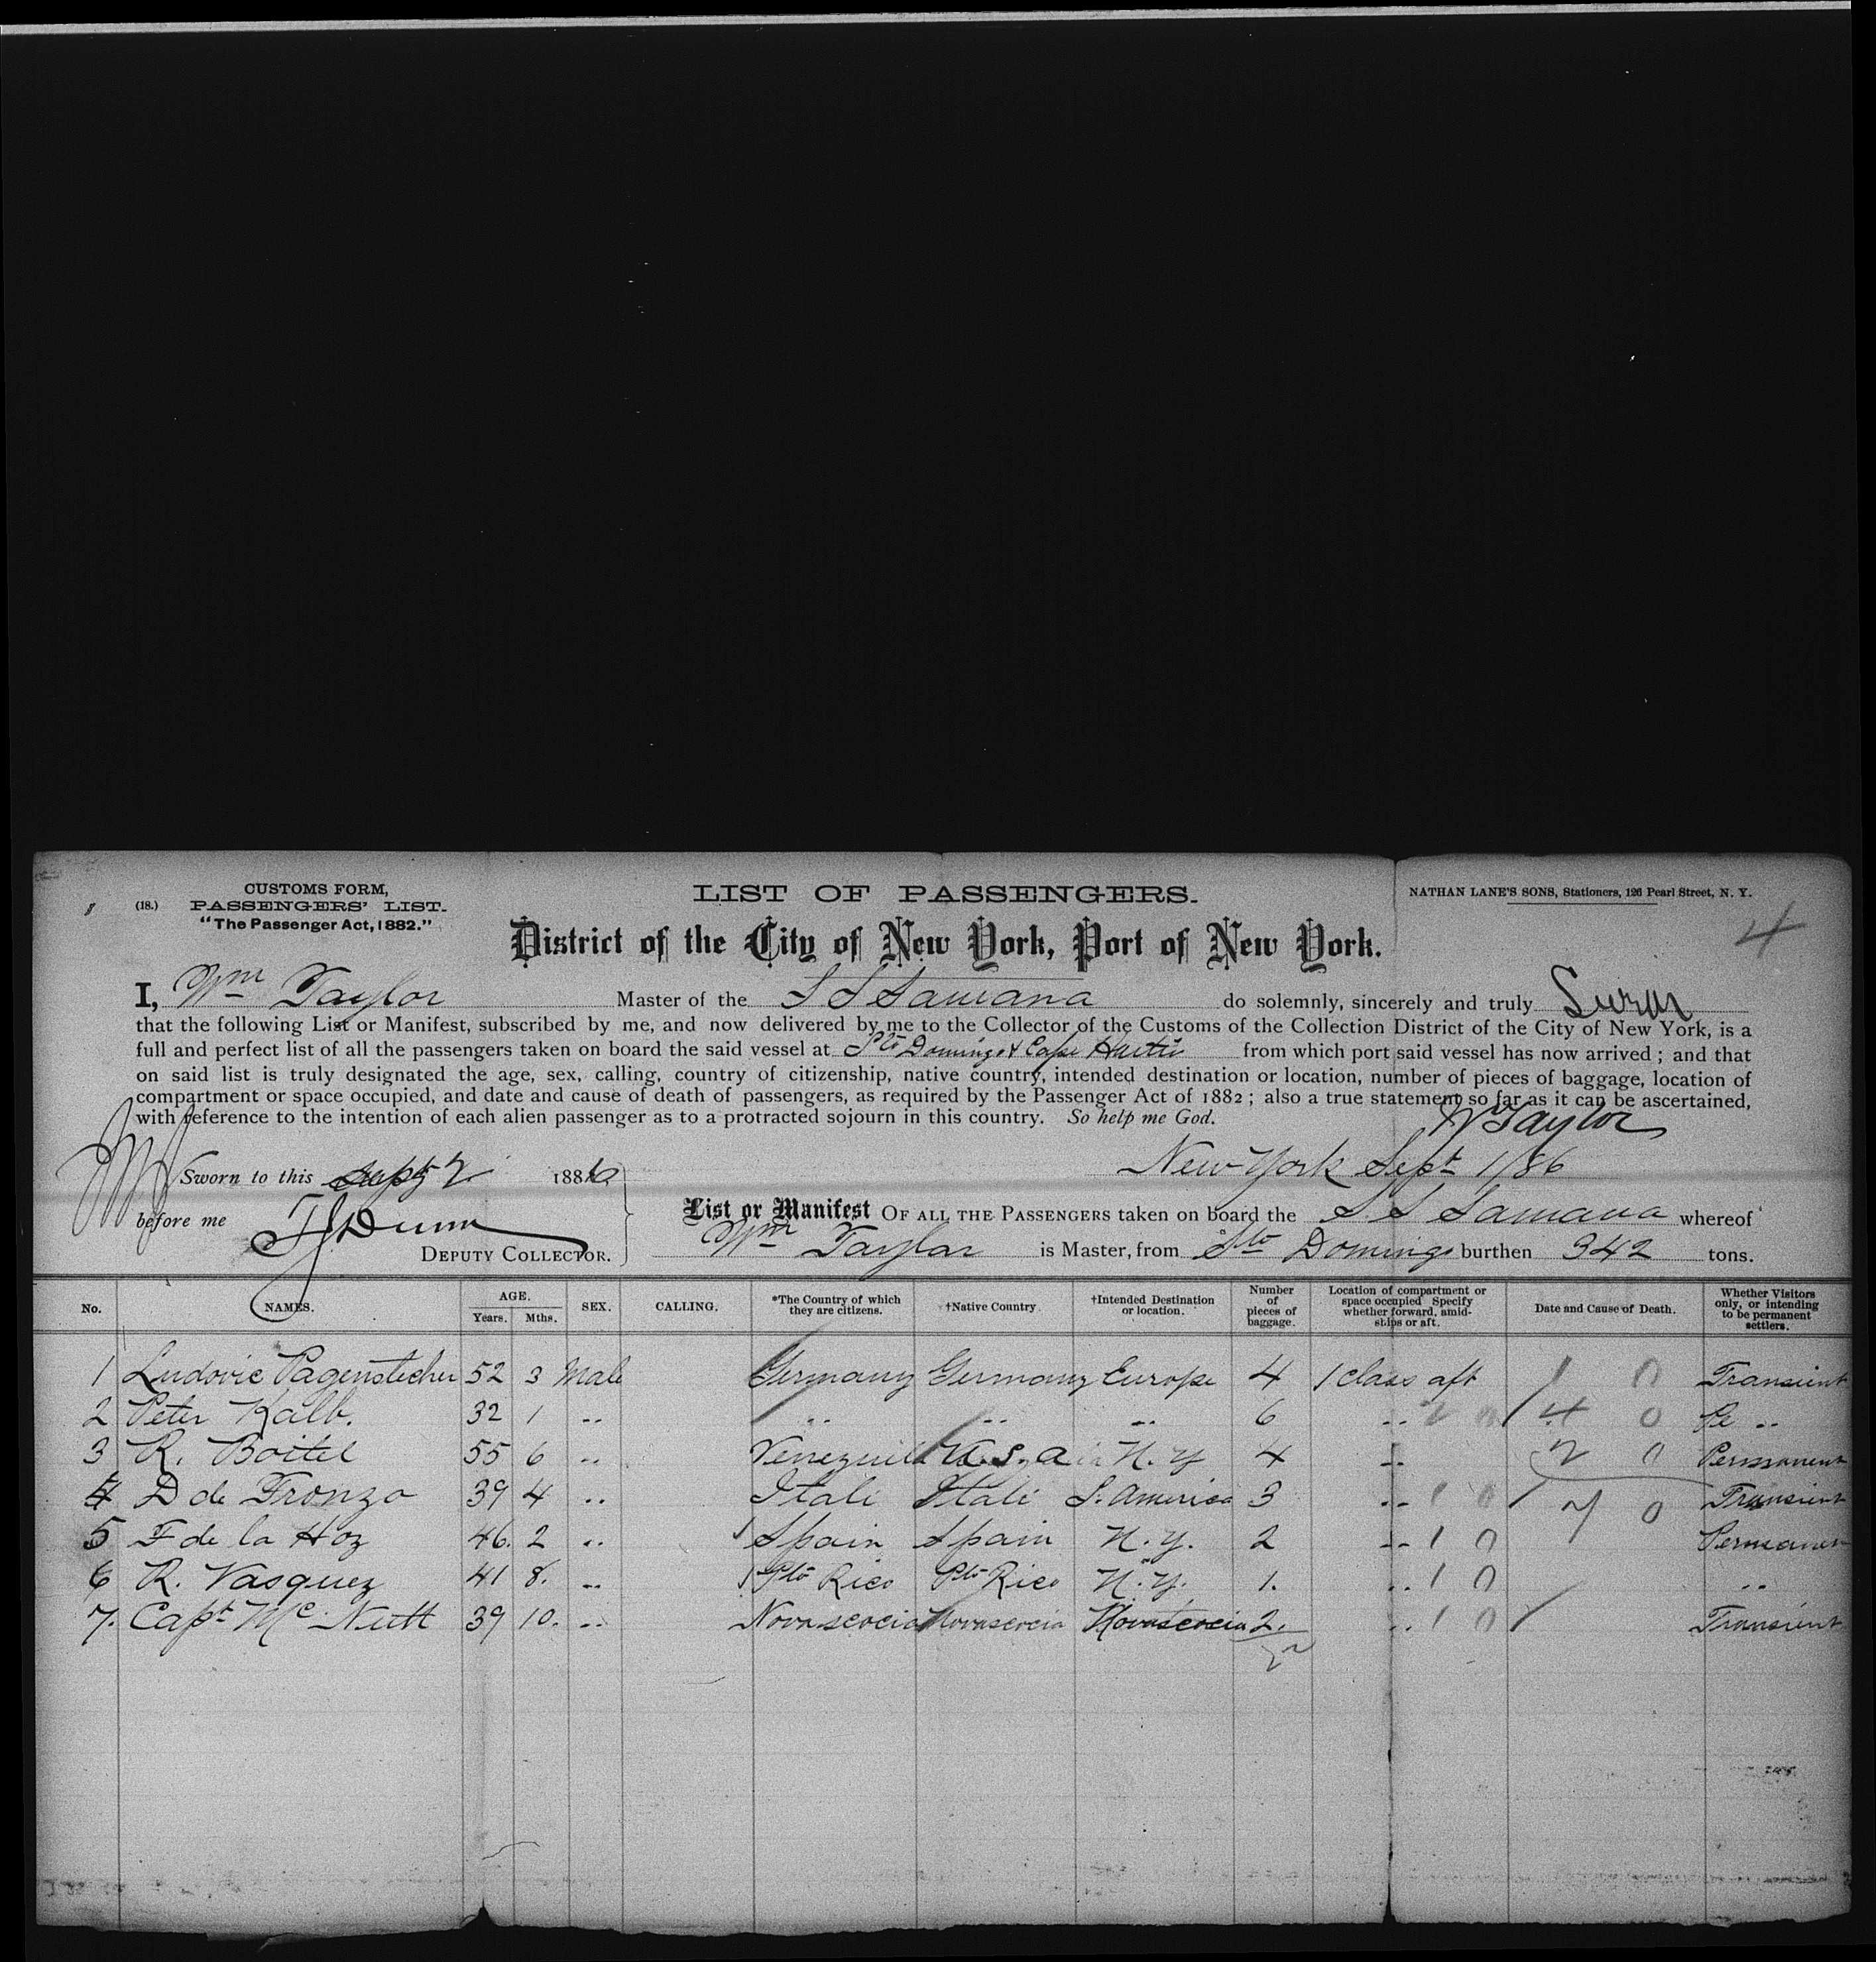 CUSTOMS FORM,
(18.) PASSENGERS' LIST.
"The Passenger Act, 1882."
LIST OF PASSENGERS.
NATHAN LANE'S SONS, Stationers, 126 Pearl Street, N. Y.
4
District of the City of New York, Port of New York.
I, Wm Taylor Master of the S S Samana do solemnly, sincerely and truly Swear
that the following List or Manifest, subscribed by me, and now delivered by me to the Collector of the Customs of the Collection District of the City of New York, is a
full and perfect list of all the passengers taken on board the said vessel at Sto Domingo & Cape Haiti from which port said vessel has now arrived; and that
on said list is truly designated the age, sex, calling, country of citizenship, native country, intended destination or location, number of pieces of baggage, location of
compartment or space occupied, and date and cause of death of passengers, as required by the Passenger Act of 1882; also a true statement so far as it can be ascertained,
with reference to the intention of each alien passenger as to a protracted sojourn in this country. So help me God.
W Taylor
Sworn to this Sept 2 1886
New York Sept 1/86
before me T J Dunn
DEPUTY COLLECTOR.
List or Manifest OF ALL THE PASSENGERS taken on board the S S Samana whereof
Wm Taylor is Master, from Sto Domingo burthen 342 tons.
No. NAMES. AGE. Years. Mths. SEX. CALLING. *The Country of which they are citizens. †Native Country. †Intended Destination or location. Number of pieces of baggage. Location of compartment or space occupied Specify whether forward, amidships or aft. Date and Cause of Death. Whether Visitors only, or intending to be permanent settlers.
1 Ludovic Pagenstecher 52 3 Male Germany Germany Europe 4 1 class aft 1 0 Transient
2 Peter Kalb. 32 1 .. .. .. .. 6 .. 4 0 ..
3 R. Boitel 55 6 .. Venezuila U.S.a N.Y 4 .. 2 0 Permanent
4 D de Fronzo 39 4 .. Itali Itali S. America 3 .. 1 0 7 0 Transient
5 F de la Hoz 46. 2 .. Spain Spain N.Y. 2 .. 1 0 Permanen
6 R. Vasquez 41 8. .. Pto Rico Pto Rico N.Y. 1. .. 1 0 ..
7. Capt Mc Nutt 39 10. .. Novascocia Novascocia Novascocia 2. .. 1 0 Transient